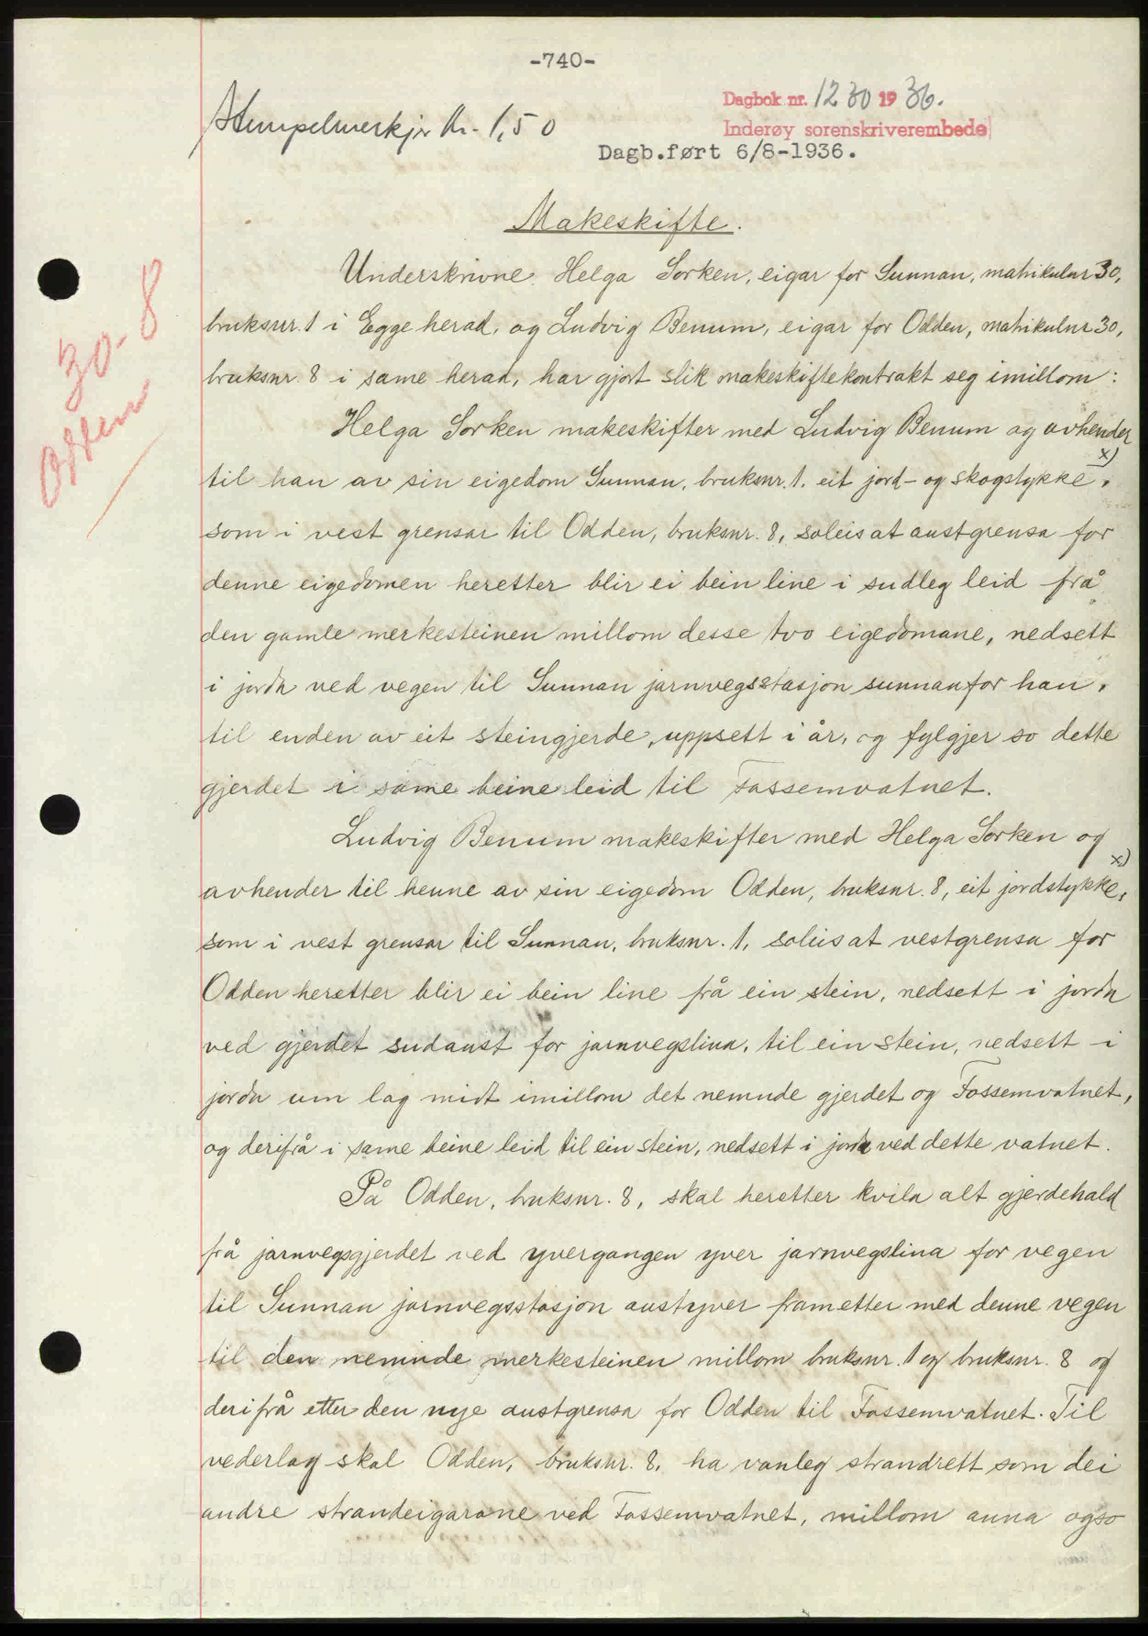 -740-
Stempelmerkje kr. 1,50
Dagbok nr. 1230 1936.
Inderøy sorenskriverembede
Dagb.ført 6/8-1936.
Makeskifte.
Underskrivne Helga Sorken, eigar for Sunnan, matrikulnr 30,
bruksnr. 1 i Egge herad, og Ludvig Benum, eigar for Odden, matrikulnr 30,
bruksnr. 8 i same herad, har gjort slik makeskiftekontrakt seg imillom:
Helga Sorken makeskifter med Ludvig Benum og avhender
til han av sin eigedom Sunnan, bruksnr. 1. eit jord- og skogstykke, x)
som i vest grensar til Odden, bruksnr. 8, soleis at austgrensa for
denne eigedomen heretter blir ei bein line i sudleg leid frå
den gamle merkesteinen millom desse tvo eigedomane, nedsett
i jorda ved vegen til Sunnan jarnvegsstasjon sunnanfor han,
til enden av eit steingjerde, uppsett i år, og fylgjer so dette
gjerdet i same beine leid til Fossemvatnet.
Ludvig Benum makeskifter med Helga Sorken og
avhender til henne av sin eigedom Odden, bruksnr. 8, eit jordstykke, x)
som i vest grensar til Sunnan, bruksnr. 1, soleis at vestgrensa for
Odden heretter blir ei bein line frå ein stein, nedsett i jorda
ved gjerdet sudaust for jarnvegslina, til ein stein, nedsett i
jorda um lag midt imillom det nemnde gjerdet og Fossemvatnet,
og derifrå i same beine leid til ein stein, nedsett i jorda ved dette vatnet.
På Odden, bruksnr. 8, skal heretter kvila alt gjerdehald
frå jarnvegsgjerdet ved yvergangen yver jarnvegslina for vegen
til Sunnan jarnvegsstasjon austyver frametter med denne vegen
til den nemnde merkesteinen millom bruksnr. 1 og bruksnr. 8 og
derifrå etter den nye austgrensa for Odden til Fossemvatnet. Til
vederlag skal Odden, bruksnr. 8, ha vanleg strandrett som dei
andre strandeigarane ved Fossemvatnet, millom anna ogso
30-8
Odden